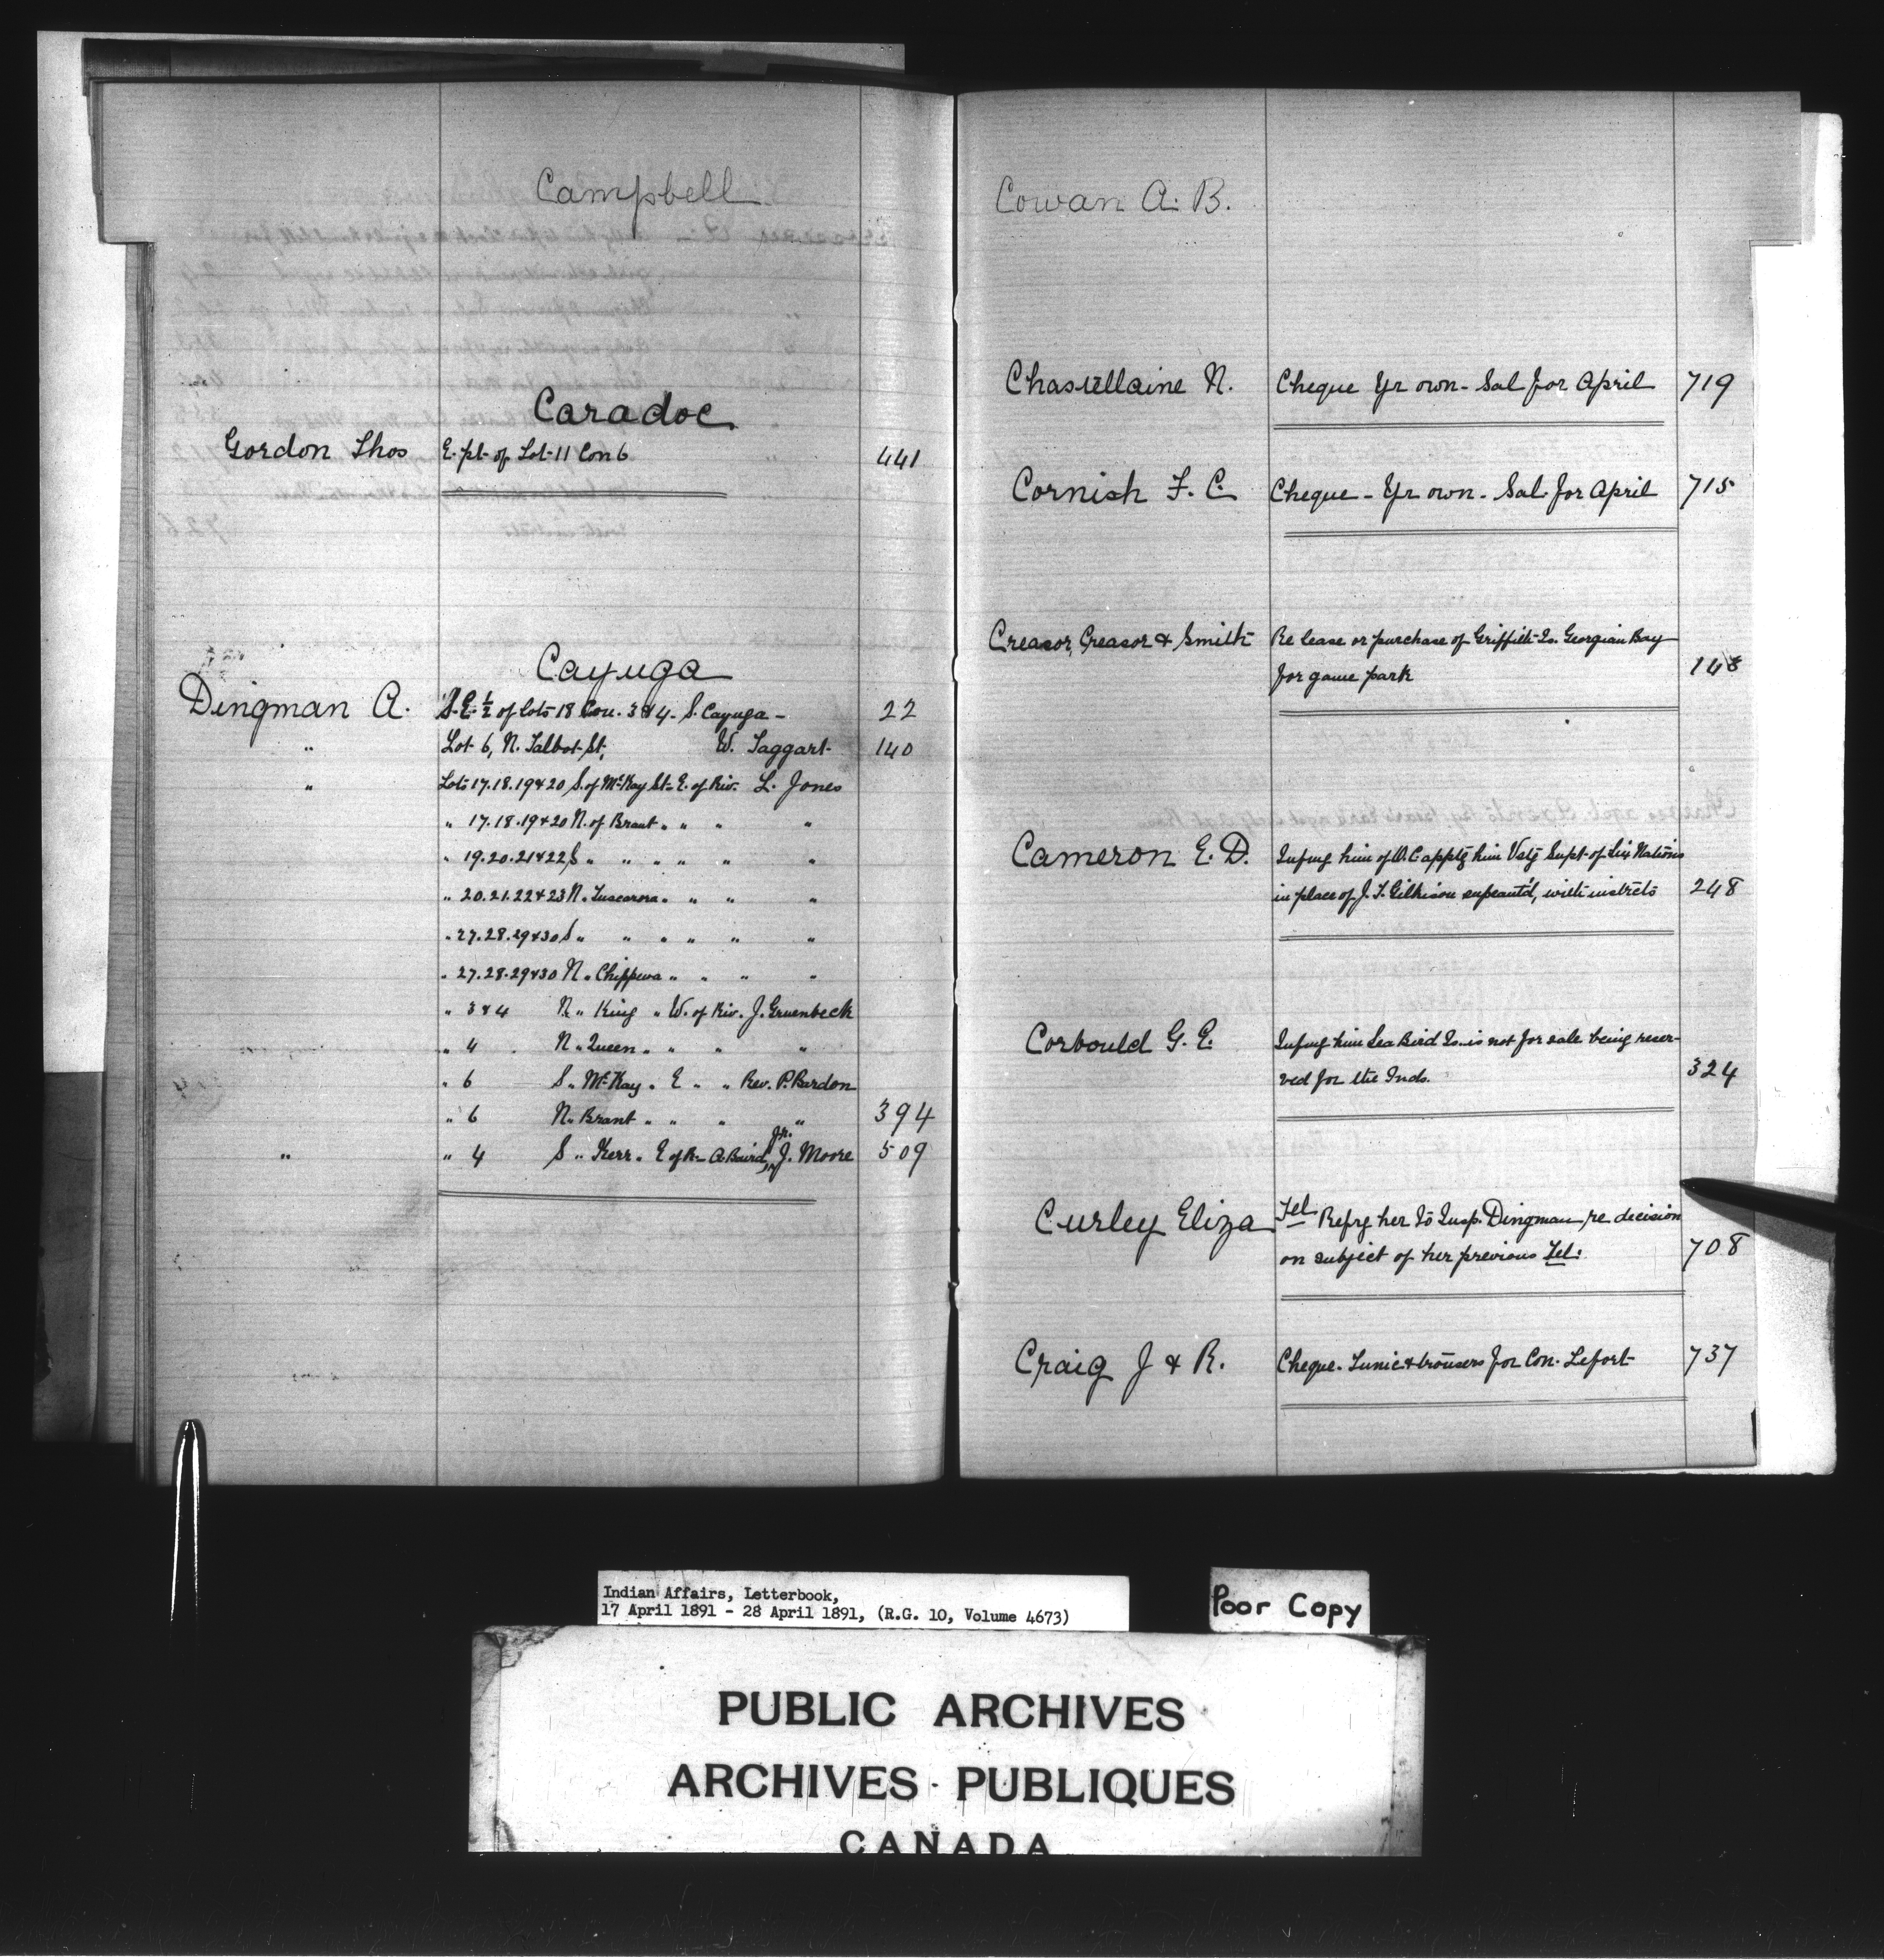 Campbell
Caradoc
Gordon Thos E. pt. of Lot 11 Con 6 441
Cayuga
Dingman A. S.E. ½ of lots 18 Con. 3 & 4 - S. Cayuga - 22
" Lot 6, N. Talbot St, W. Taggart 140
" Lots 17.18.19 & 20 S. of McKay St. E. of Riv. L. Jones
" 17.18.19 & 20 N. of Brant " " " "
" 19.20.21 & 22 S " " " " " "
" 20.21.22 & 23 N. Tuscarora " " " "
" 27.28.29 & 30 S " " " " " "
" 27.28.29 & 30 N " Chippewa " " " "
" 3 & 4 N " King " W. of Riv. J. Gruenbeck
" 4 N " Queen " " " "
" 6 S " McKay " E " " Rev. P. Bardon
" 6 N " Brant " " " " 394
" " 4 S " Kerr " E of R - A. Baird, Jr. J. Moore 509
Cowan A. B.
Chastellaine N. Cheque Yr own - Sal for April 719
Cornish F. C. Cheque - Yr own - Sal. for April 715
Creasor, Creasor & Smith Re lease or purchase of Griffith Is. Georgian Bay
for game park 148
Cameron E. D. Infmg him of O.C. apptg him Vstg Supt. of Six Nations
in place of J. T. Gilkison supeantd, with instrcts 248
Corbould G. E. Infmg him Sea Bird Is. is not for sale being reser-
ved for the Inds. 324
Curley Eliza Tel Refrg her to Insp. Dingman re decision
on subject of her previous Tel. 708
Craig J & R. Cheque. Tunic & trousers for Con. Lefort 737
Indian Affairs, Letterbook,
17 April 1891 - 28 April 1891, (R.G. 10, Volume 4673)
Poor Copy
PUBLIC ARCHIVES
ARCHIVES PUBLIQUES
CANADA